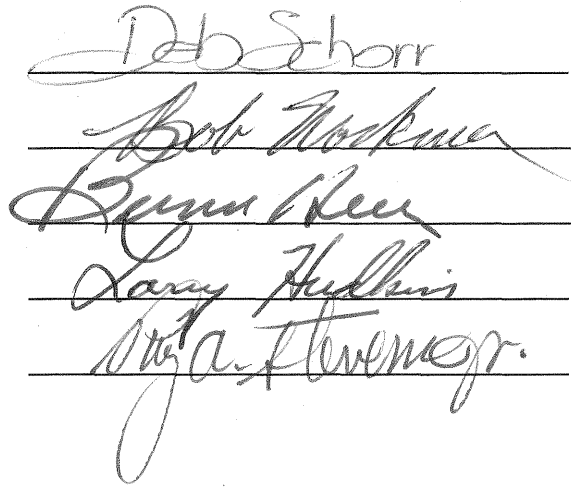 Deb Schorr
Bob Workman
Larry Hudkins
Ray A. Stevens Jr.